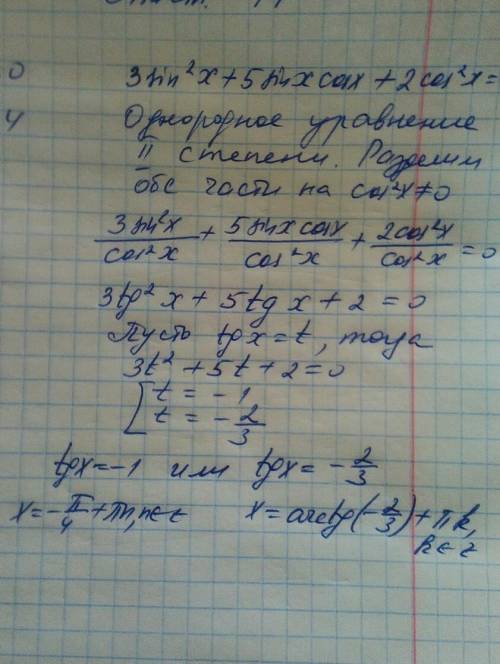 0 3sin²x+5sinxcosx+2cos²x=
4 Однородное уравнение
II степени. Разделим
обе части на cos²x≠0
3sin²x/cos²x + 5sinxcosx/cos²x + 2cos²x/cos²x = 0
3tg²x + 5tgx + 2 = 0
Пусть tgx = t, тогда
3t² + 5t + 2 = 0
[ t = -1
t = -2/3
tgx = -1 или tgx = -2/3
x = -π/4 + πn, n∈z x = arctg(-2/3) + πk,
k∈z